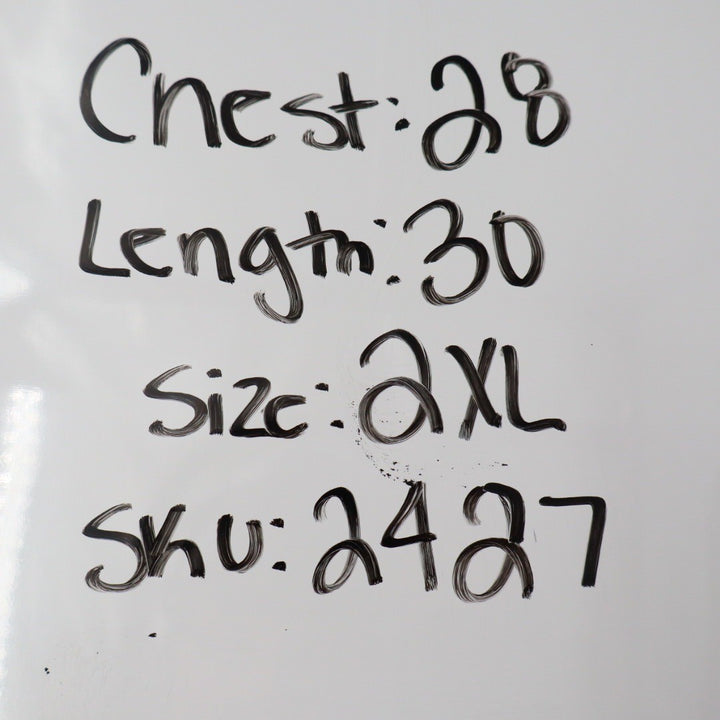 Chest: 28
Length: 30
Size: 2XL
Sku: 2427